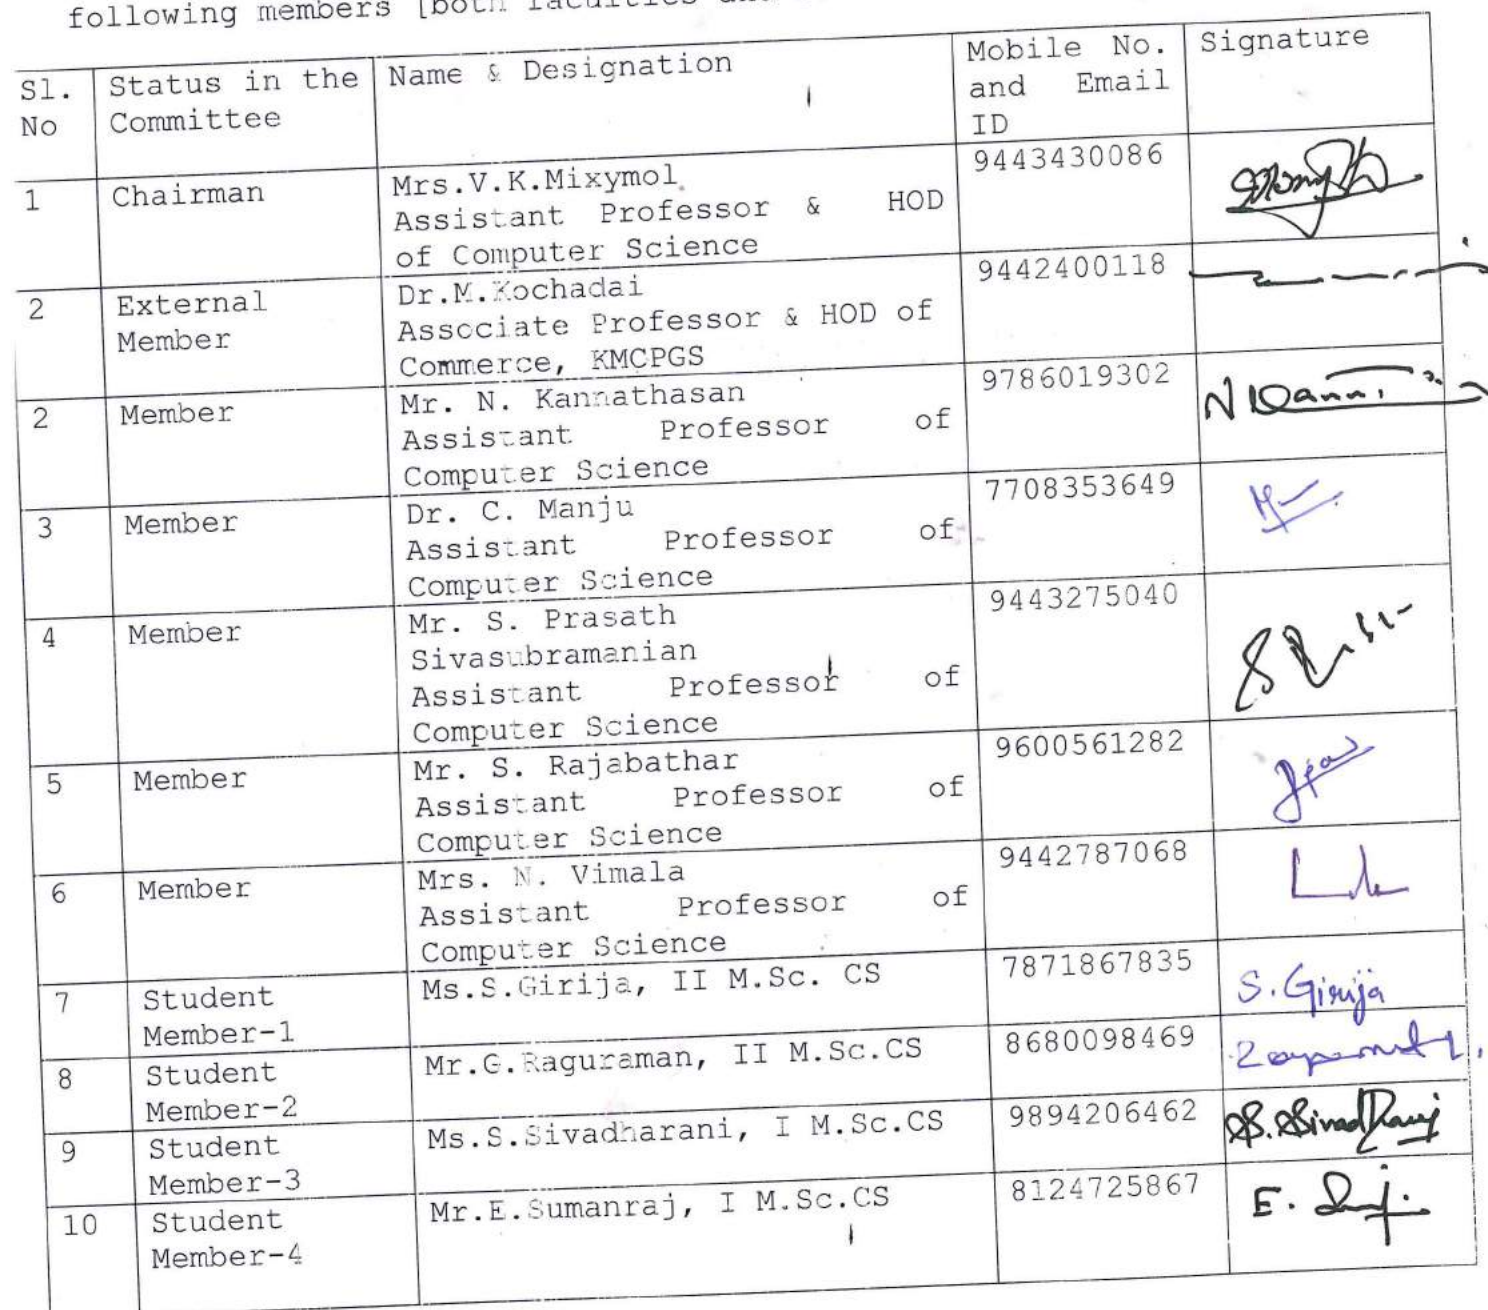 following members [both faculties
Sl. No | Status in the Committee | Name & Designation | Mobile No. and Email ID | Signature
1 | Chairman | Mrs.V.K.Mixymol
Assistant Professor & HOD
of Computer Science | 9443430086
2 | External Member | Dr.M.Kochadai
Associate Professor & HOD of
Commerce, KMCPGS | 9442400118
2 | Member | Mr. N. Kannathasan
Assistant Professor of
Computer Science | 9786019302
3 | Member | Dr. C. Manju
Assistant Professor of
Computer Science | 7708353649
4 | Member | Mr. S. Prasath
Sivasubramanian
Assistant Professor of
Computer Science | 9443275040
5 | Member | Mr. S. Rajabathar
Assistant Professor of
Computer Science | 9600561282
6 | Member | Mrs. N. Vimala
Assistant Professor of
Computer Science | 9442787068
7 | Student Member-1 | Ms.S.Girija, II M.Sc. CS | 7871867835 | S. Girija
8 | Student Member-2 | Mr.G.Raguraman, II M.Sc.CS | 8680098469
9 | Student Member-3 | Ms.S.Sivadharani, I M.Sc.CS | 9894206462
10 | Student Member-4 | Mr.E.Sumanraj, I M.Sc.CS | 8124725867